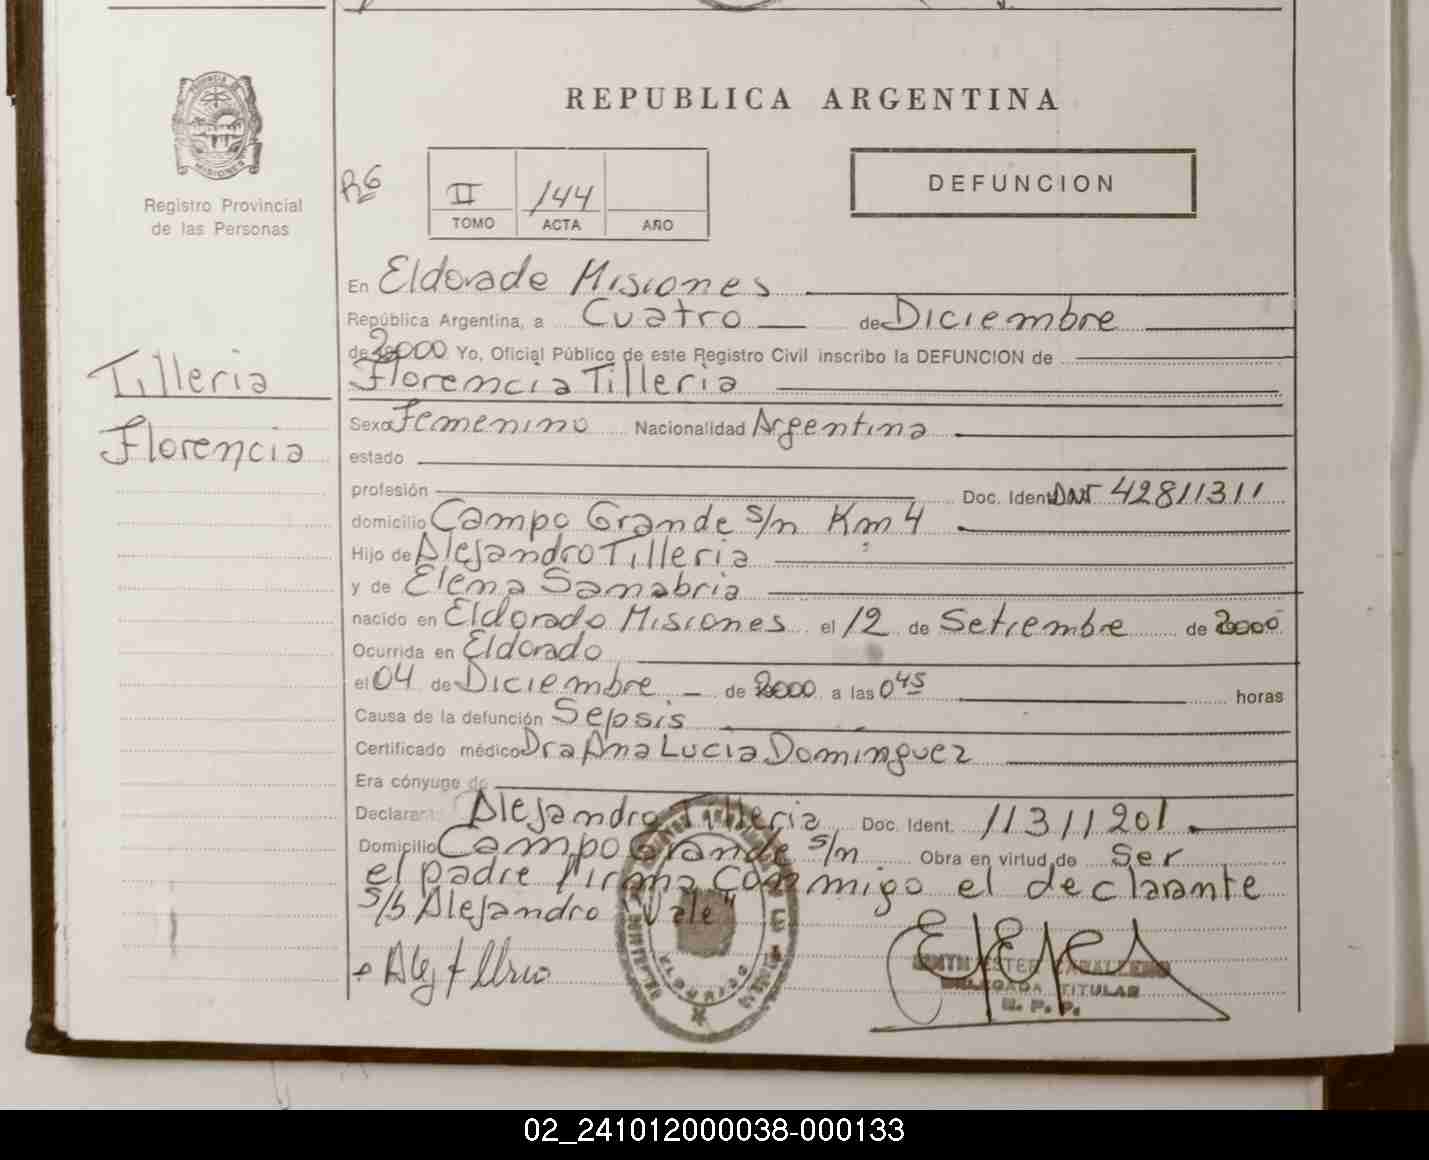 REPUBLICA ARGENTINA
PROVINCIA DE
MISIONES
Registro Provincial
de las Personas
R6
II /144
TOMO ACTA AÑO
DEFUNCION
Tilleria
Florencia
En Eldorado Misiones
República Argentina, a Cuatro de Diciembre
de 2000 Yo, Oficial Público de este Registro Civil inscribo la DEFUNCION de
Florencia Tilleria
Sexo Femenino Nacionalidad Argentina
estado
profesión Doc. Ident. 42811311
domicilio Campo Grande s/n Km 4
Hijo de Alejandro Tilleria
y de Elena Sanabria
nacido en Eldorado Misiones el 12 de Setiembre de 2000
Ocurrida en Eldorado
el 04 de Diciembre de 2000 a las 0 45 horas
Causa de la defunción Sepsis
Certificado médico Dra Ana Lucia Dominguez
Era cónyuge de
Declarante Alejandro Tilleria Doc. Ident. 11311201
Domicilio Campo Grande s/n Obra en virtud de Ser
el padre Firma Conmigo el declarante
s/b Alejandro "Vale"
ELDORADO
ESTER CABALLERO
DELEGADA TITULAR
R. P. P.
02_241012000038-000133